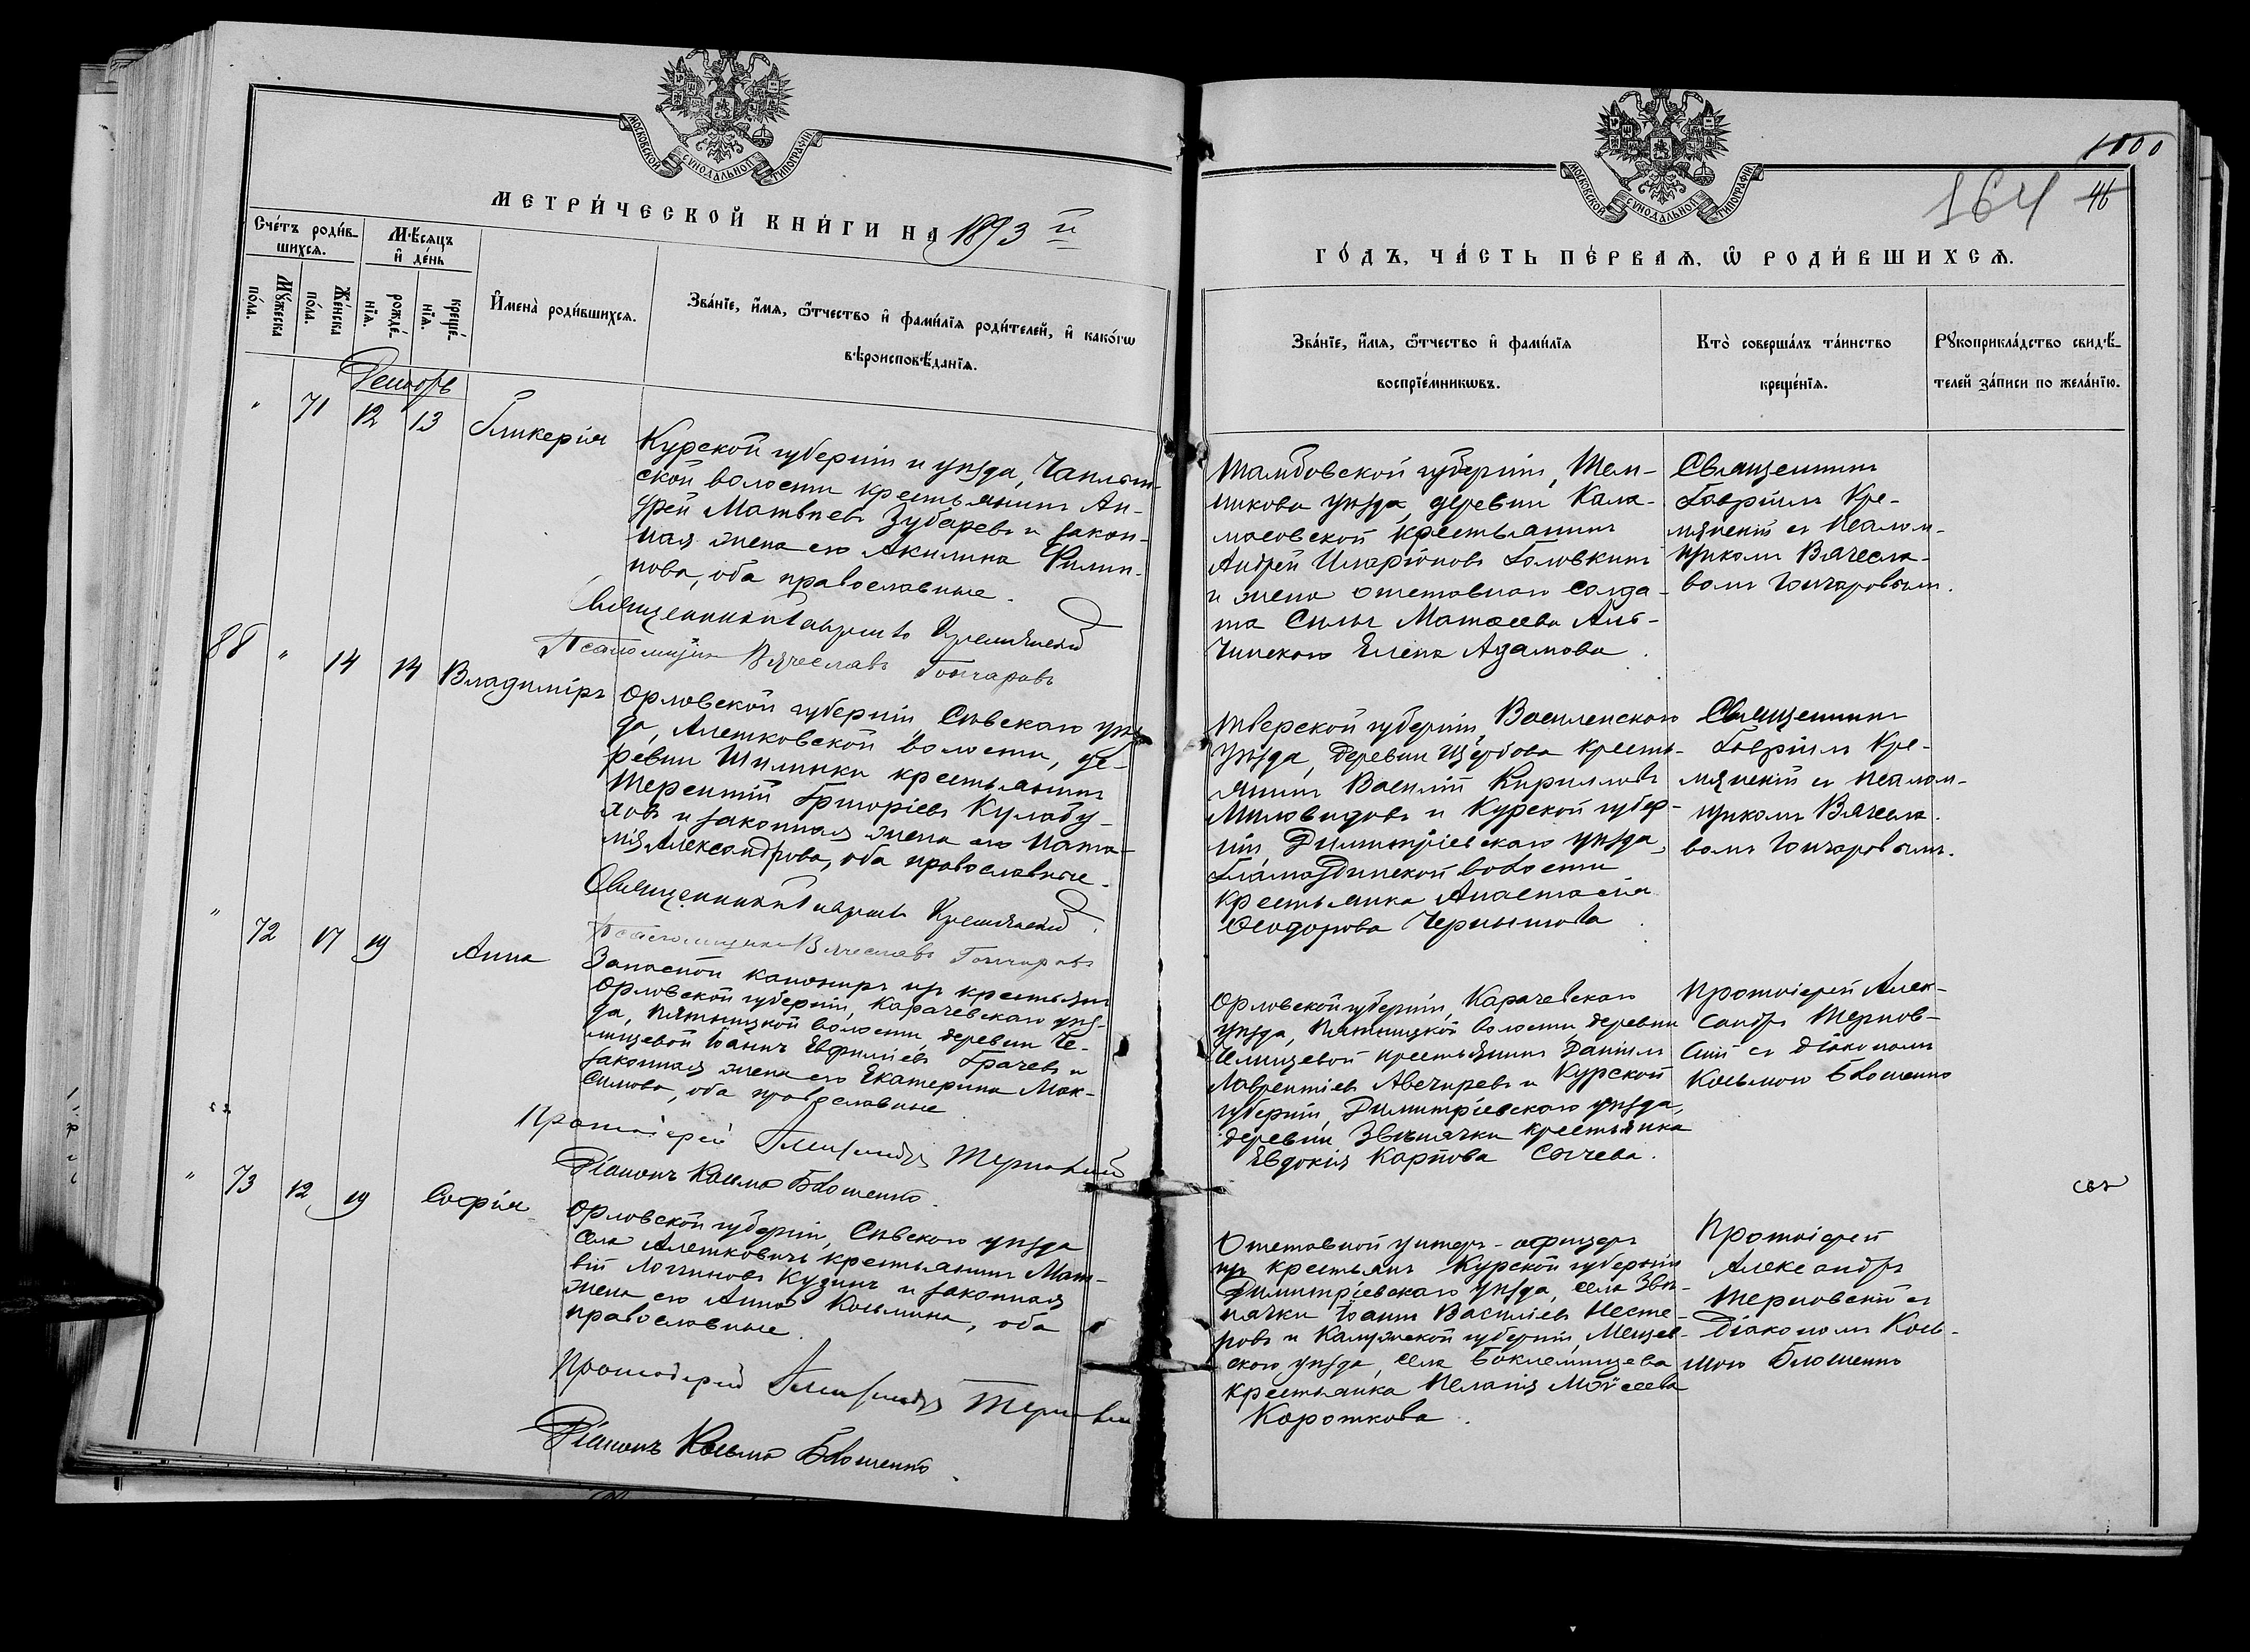 МОСКОВСКОЙ СѴНОДАЛЬНОЙ ТИПОГРАФІИ.
МЕТРИ́ЧЕСКОЙ КНИ́ГИ НА 1893 й
Сче́тъ роди́в-
шихсѧ.
Мѣ́сѧцъ
и҆ де́нь
Мꙋ́жеска
по́ла.
Же́нска
по́ла.
рожде́-
нїѧ.
креще́-
нїѧ.
И҆мена̀ роди́вшихсѧ.
Зва́нїе, и҆́мѧ, ѻ҆́тчество и҆ фами́лїѧ роди́телей, и҆ како́гѡ
вѣроисповѣ́данїѧ.
Декабрь
" 71 12 13 Гликерія
Курской губерніи и уѣзда, Чаплыг-
ской волости крестьянинъ Ан-
дрей Матвѣевъ Зубаревъ и закон-
ная жена его Акилина Филип-
пова, оба православные.
Священникъ Гавріилъ Кремянскій
Псаломщикъ Вячеславъ Гончаровъ
88 " 14 14 Владиміръ
Орловской губерніи, Сѣвскаго уѣз-
да, Алешковской волости, де-
ревни Шилинки крестьянинъ
Терентій Григоріевъ Кулабу-
ховъ и законная жена его Ната-
лія Александрова, оба православные.
Священникъ Гавріилъ Кремянскій
Псаломщикъ Вячеславъ Гончаровъ
" 72 17 19 Анна
Запасной канониръ изъ крестьянъ
Орловской губерніи, Карачевскаго уѣз-
да, Пятницкой волости, деревни Че-
лищевой Іоаннъ Евфиміевъ Грачевъ и
законная жена его Екатерина Мак-
симова, оба православные
Протоіерей Александръ Терновскій
Діаконъ Косма Евошенко.
" 73 12 19 Софія
Орловской губерніи, Сѣвскаго уѣзда
села Алешковичъ крестьянинъ Мат-
вій Логгиновъ Кузинъ и законная
жена его Анна Косьмина, оба
православные.
Протоіерей Александръ Терновскій
Діаконъ Косьма Евошенко.
МОСКОВСКОЙ СѴНОДАЛЬНОЙ ТИПОГРАФІИ.
1000
164 46
ГО́ДЪ, ЧА́СТЬ ПЕ́РВАѦ, Ѡ҆ РОДИ́ВШИХСѦ.
Зва́нїе, и҆́мѧ, ѻ҆́тчество и҆ фами́лїѧ
воспрїе́мникѡвъ.
Кто̀ соверша́лъ та́инство
креще́нїѧ.
Рꙋкоприкла́дство свидѣ́-
телей за́писи по жела́нїю.
Тамбовской губерніи, Тем-
никова уѣзда, деревни Кала-
масовской крестьянинъ
Андрей Иларіоновъ Головкинъ
и жена отставнаго солда-
та Силы Матѳеева
Елена Адамова.
Священникъ
Гавріилъ Кре-
мянскій съ псалом-
щикомъ Вячесла-
вомъ Гончаровымъ.
Тверской губерніи, Василенского
уѣзда, деревни Щербова кресть-
янинъ Василій Кирилловъ
Миловидовъ и Курской губер-
ніи, Димитріевскаго уѣзда,
волости
крестьянка Анастасія
Ѳеодорова Чернышова.
Священникъ
Гавріилъ Кре-
мянскій съ псалом-
щикомъ Вячесла-
вомъ Гончаровымъ.
Орловской губерніи, Карачевскаго
уѣзда, Пятницкой волости, деревни
Челищевой крестьянинъ Даніилъ
Лаврентіевъ Авечкревъ и Курской
губерніи, Димитріевскаго уѣзда,
деревни Звѣнячки крестьянка
Евдокія Карпова Сычева.
Протоіерей Алек-
сандръ Тернов-
скій съ діакономъ
Косьмою Евошенко
свз
Отставной унтеръ-офицеръ
изъ крестьянъ Курской губерніи
Димитріевскаго уѣзда, села Звѣ-
нячки Іоаннъ Василіевъ Несте-
ровъ и Калужской губерніи, Мещов-
скаго уѣзда, села Боклемищева
крестьянка Пелагія Моѵсеева
Короткова.
Протоіерей
Александръ
Терновскій съ
Діакономъ Кось-
мою Евошенко